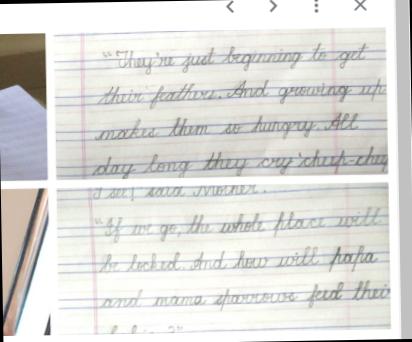 "They're just beginning to get
their feathers. And growing up
makes them so hungry. All
day long they cry 'cheep-chee
I see! said Mother.
"If we go, the whole place will
be locked. And how will papa
and mama sparrows feed thei